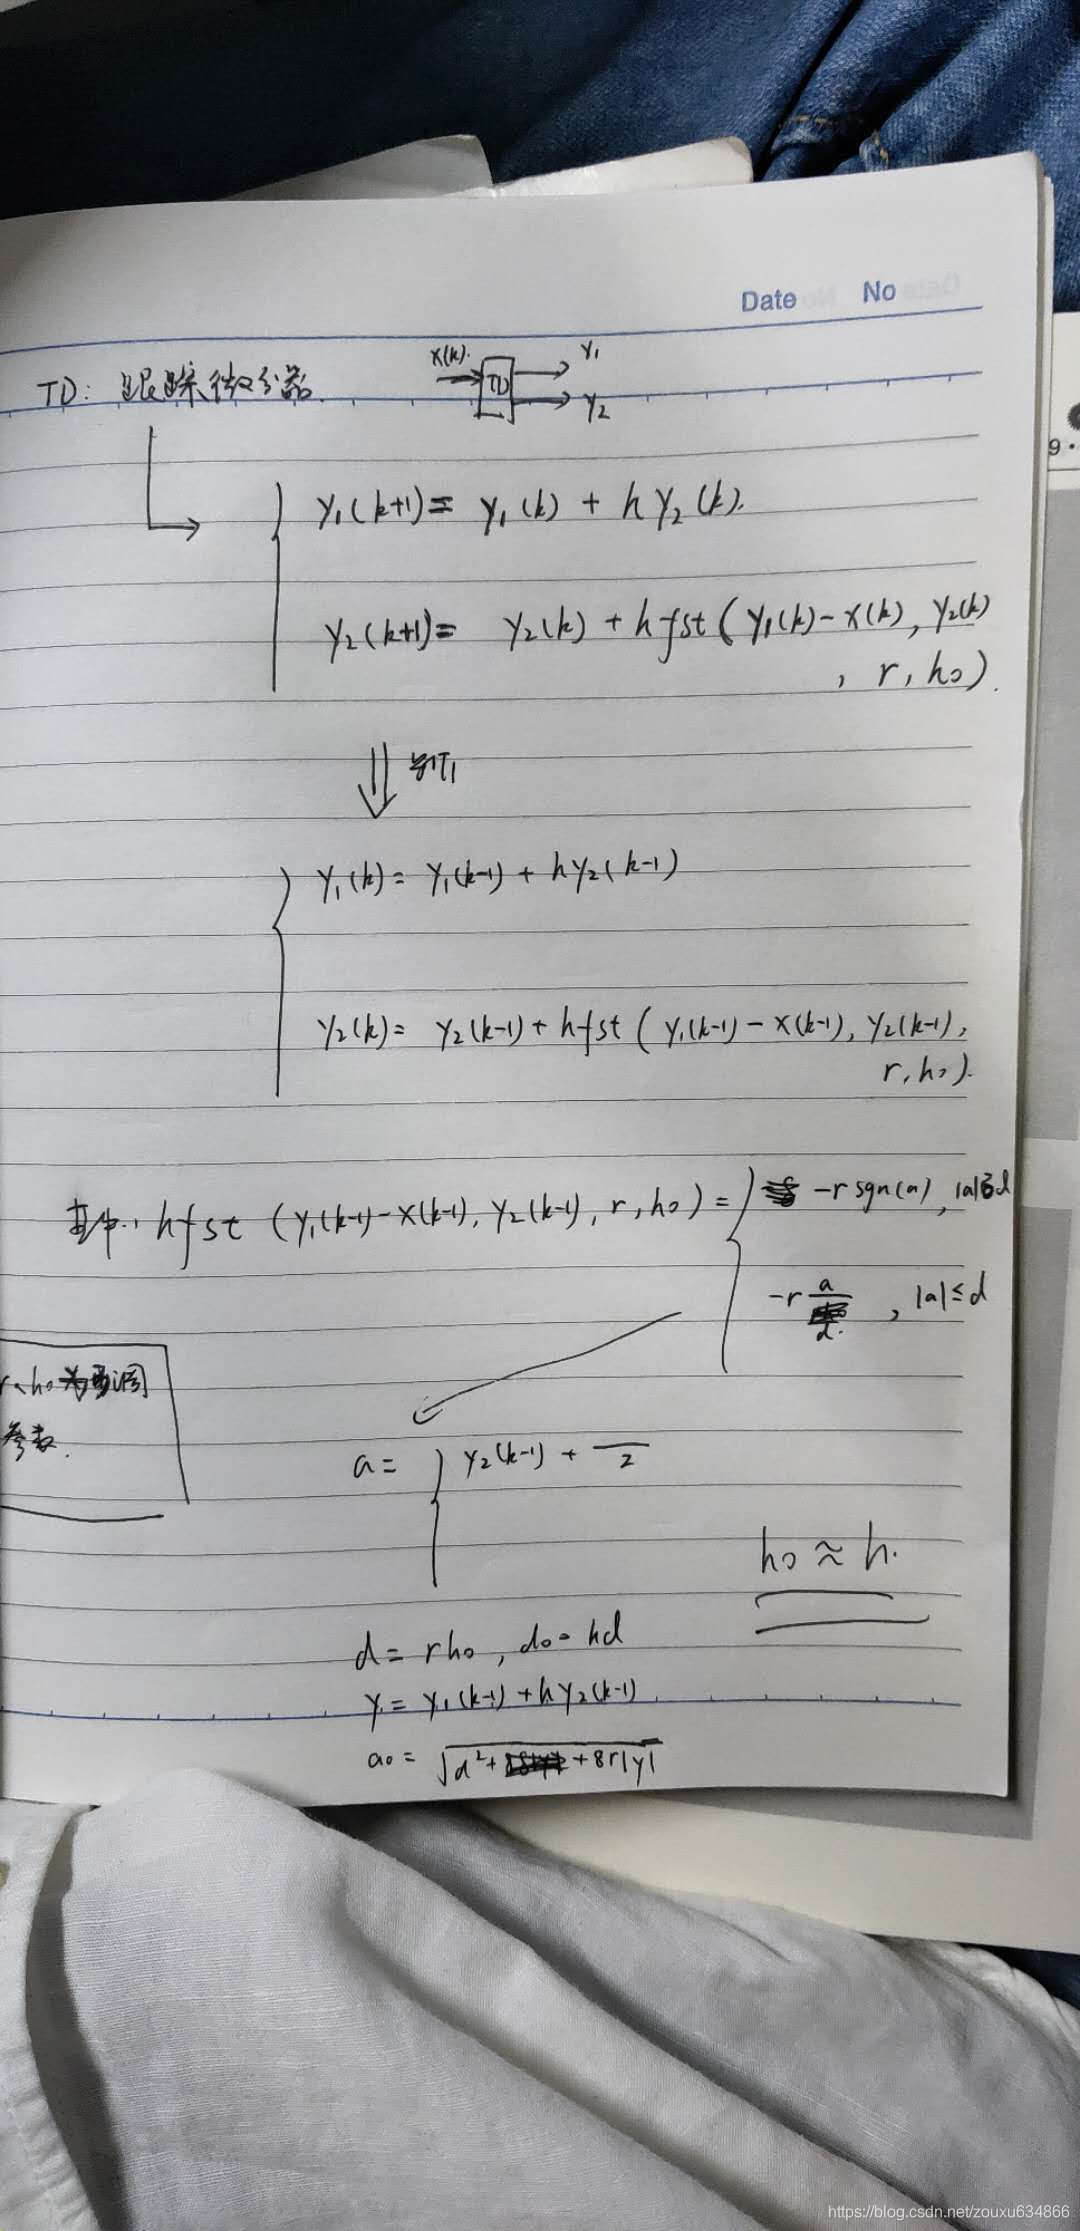 Date No
TD: 跟踪微分器 x(k). TD y₁
y₂
y₁(k+1) = y₁(k) + h y₂(k).
y₂(k+1) = y₂(k) + h fst ( y₁(k) - x(k), y₂(k)
, r, h₀).
y₁(k) = y₁(k-1) + h y₂(k-1)
y₂(k) = y₂(k-1) + h fst ( y₁(k-1) - x(k-1), y₂(k-1),
r, h₀).
其中, h fst ( y₁(k-1) - x(k-1), y₂(k-1), r, h₀) = -r sgn(a), |a| d
-r a/d , |a| ≤ d
r、h₀为可调
参数.
a = y₂(k-1) + —/2
h₀ ≈ h.
d = rh₀, d₀ = hd
y = y₁(k-1) + h y₂(k-1)
a₀ = √(d² + + 8r|y|)
9
https://blog.csdn.net/zouxu634866